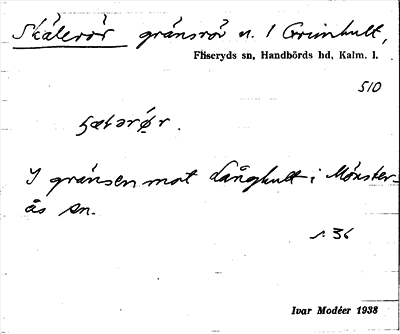 Skälerör gränsrör n. 1 Grimhult,
Fliseryds sn, Handbörds hd, Kalm. l.
510
I gränsen mot Långhult i Mönster-
ås sn.
s. 36
Ivar Modéer 1938